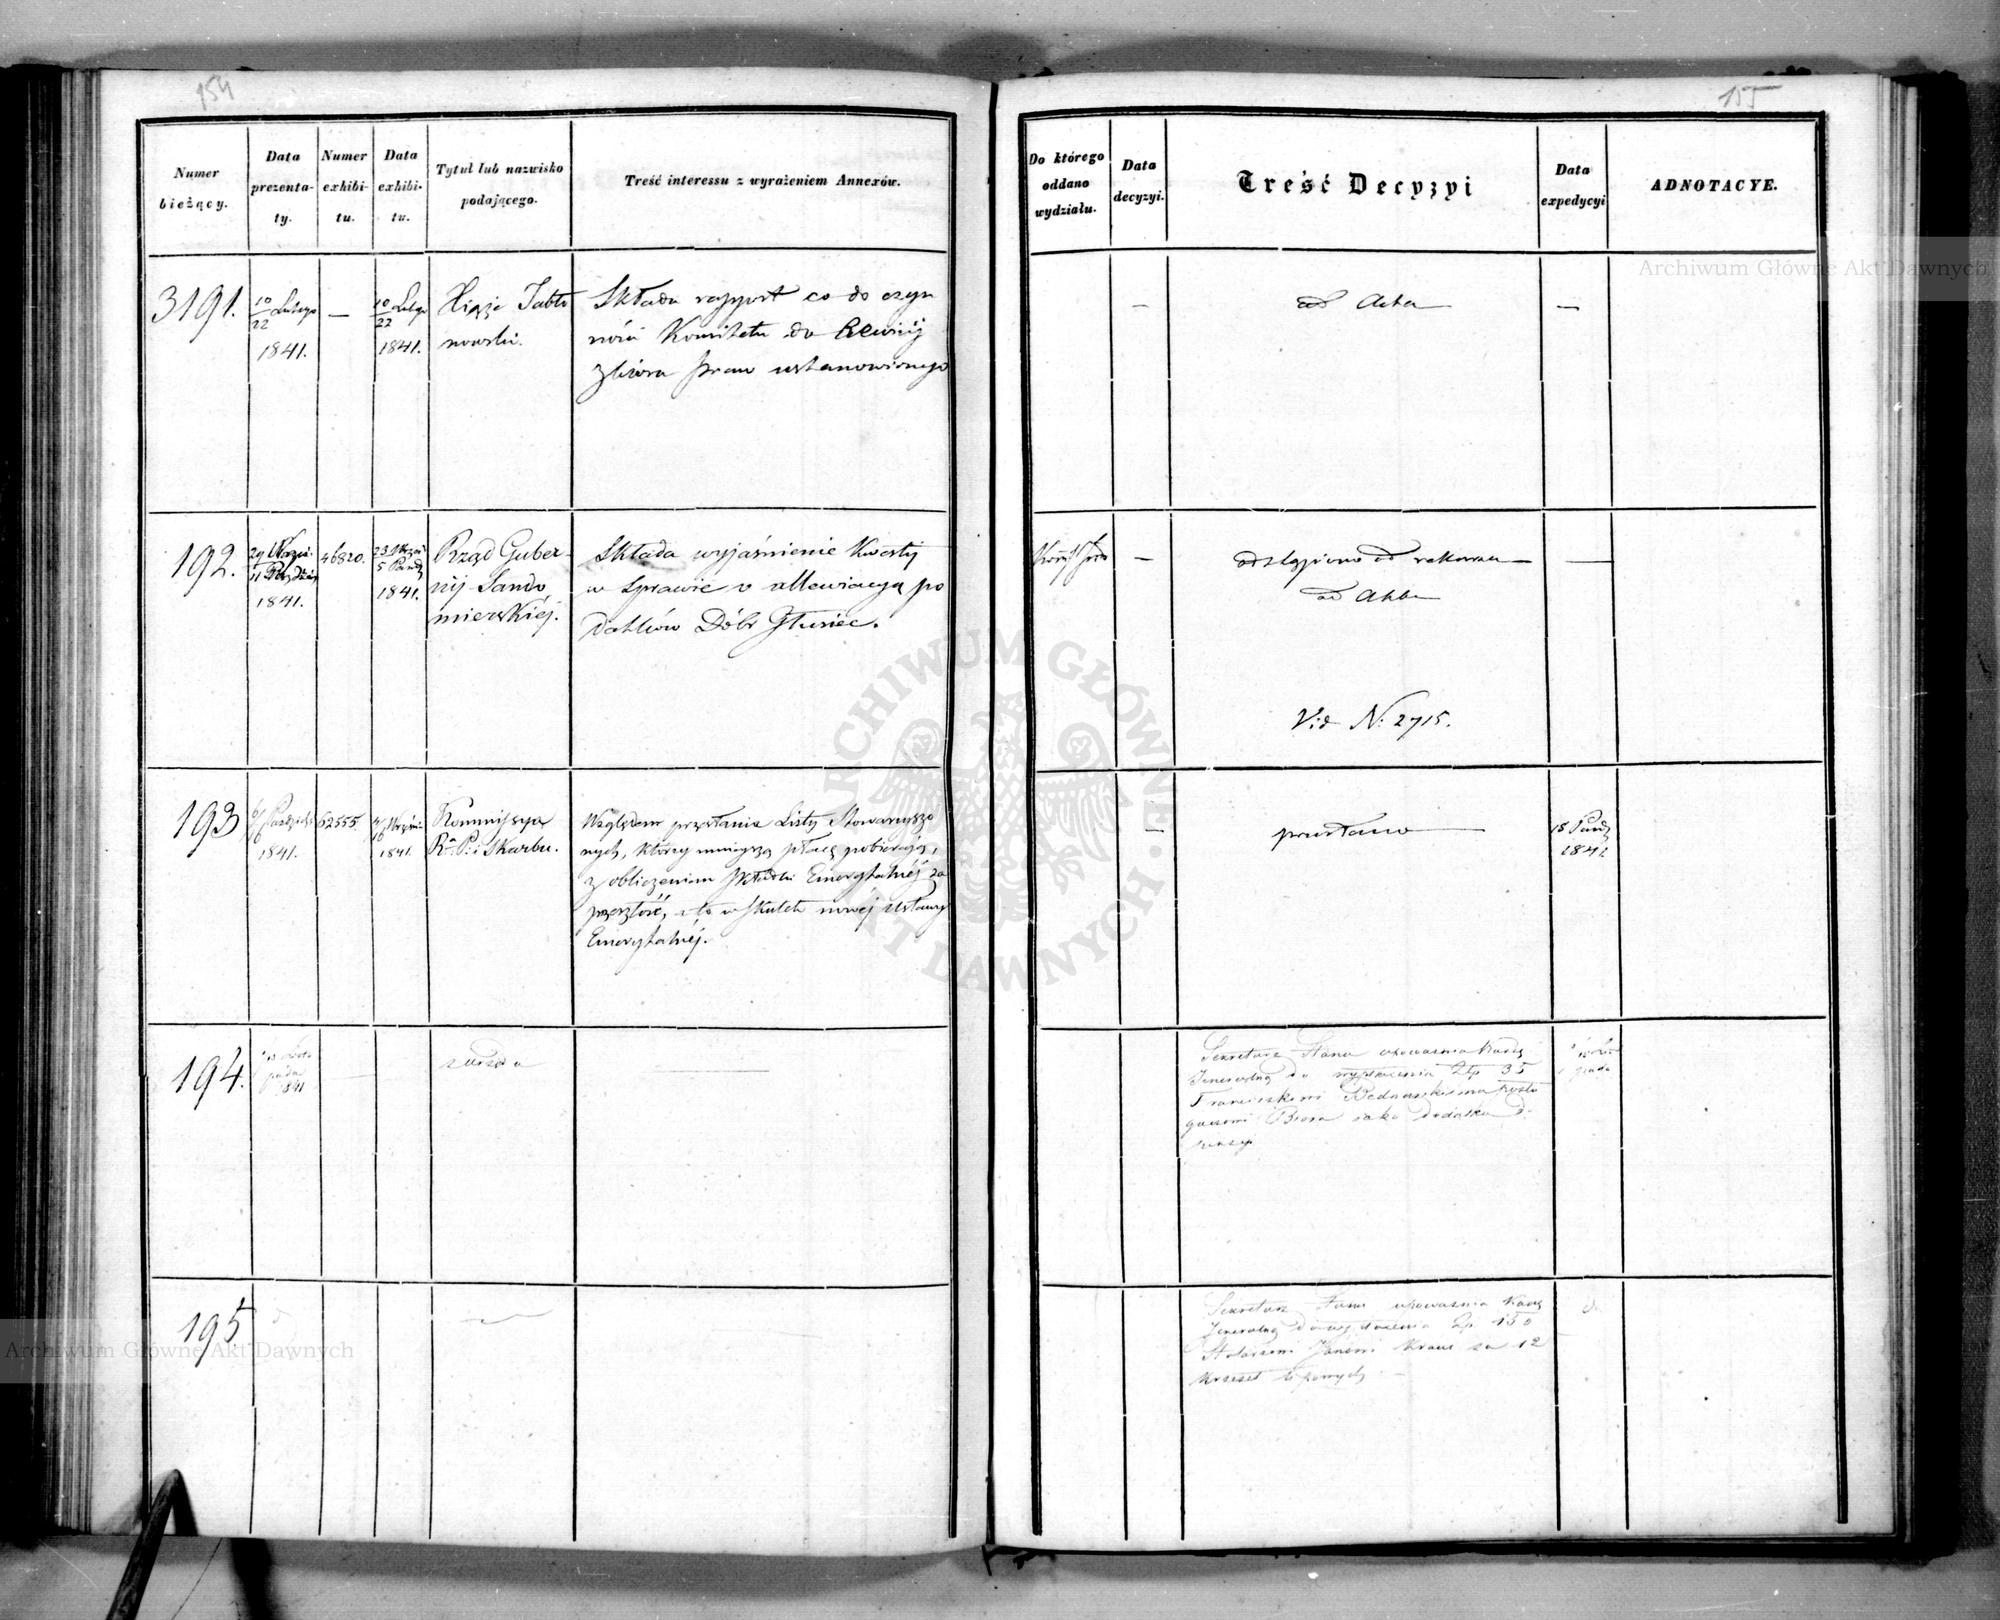 154
Numer
bieżący.
Data
prezenta-
ty.
Numer
exhibi-
tu.
Data
exhibi-
tu.
Tytuł lub nazwisko
podającego.
Treść interessu z wyrażeniem Annexów.
3191.
10/22 Lutego
1841.
—
10/22 Lutego
1841.
Xiążę Jabło
nowski.
Składa rapport co do czyn
ności Komitetu do Rewizij
zbioru praw ustanowionego
192.
29
11 Paździe
1841.
46820.
23 Wrześ
5 Paźd
1841.
Rząd Guber-
nij Sando
mierskiéj.
Składa wyjaśnienie Kwestij
w Sprawie o allewiacyą po
datków Dóbr
193
1841.
62555.
Wrześ
1841.
Kommissya
R. P. i Skarbu.
Względem przesłania Listy Stowarzyszo
nych, którzy mniejszą płacę pobierają,
z obliczeniem składki Emerytalnéj za
przeszłość, a to w skutek nowej Ustawy
Emerytalnéj.
194.
1841
zurzędu
195
155
Do którego
oddano
wydziału.
Data
decyzyi.
Treść Decyzyi
Data
expedycyi
ADNOTACYE.
—
ad Acta
—
—
odstąpiono od rekursu
ad Acta
—
Vid N: 2715.
—
przesłano
15 Paźd
1841
Sekretarz Stanu upoważnia Kassę
Jeneralną do wypłacenia Złp 35
Franciszkowi Bednarskiemu
Biora jako dodatku do
pensyi
Sekretarz Stanu upoważnia Kassę
Jeneralną do wypłacenia Złp 150
Stolarzowi Janowi Kraus za 12
krzeseł
Archiwum Główne Akt Dawnych
Archiwum Główne Akt Dawnych
ARCHIWUM GŁÓWNE AKT DAWNYCH